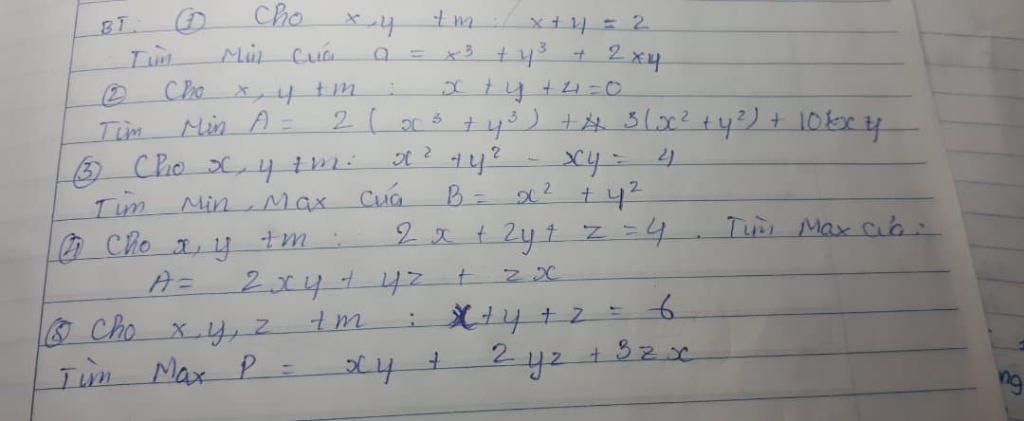 BT: ① Cho x, y t/m: x + y = 2
Tìm Min của Q = x³ + y³ + 2xy
② Cho x, y t/m: x + y + 4 = 0
Tìm Min A = 2(x³ + y³) + 3(x² + y²) + 10xy
③ Cho x, y t/m: x² + y² - xy = 4
Tìm Min, Max của B = x² + y²
④ Cho x, y t/m: 2x + 2y + z = 4. Tìm Max của:
A = 2xy + yz + zx
⑤ Cho x, y, z t/m: x + y + z = 6
Tìm Max P = xy + 2yz + 3zx
ng